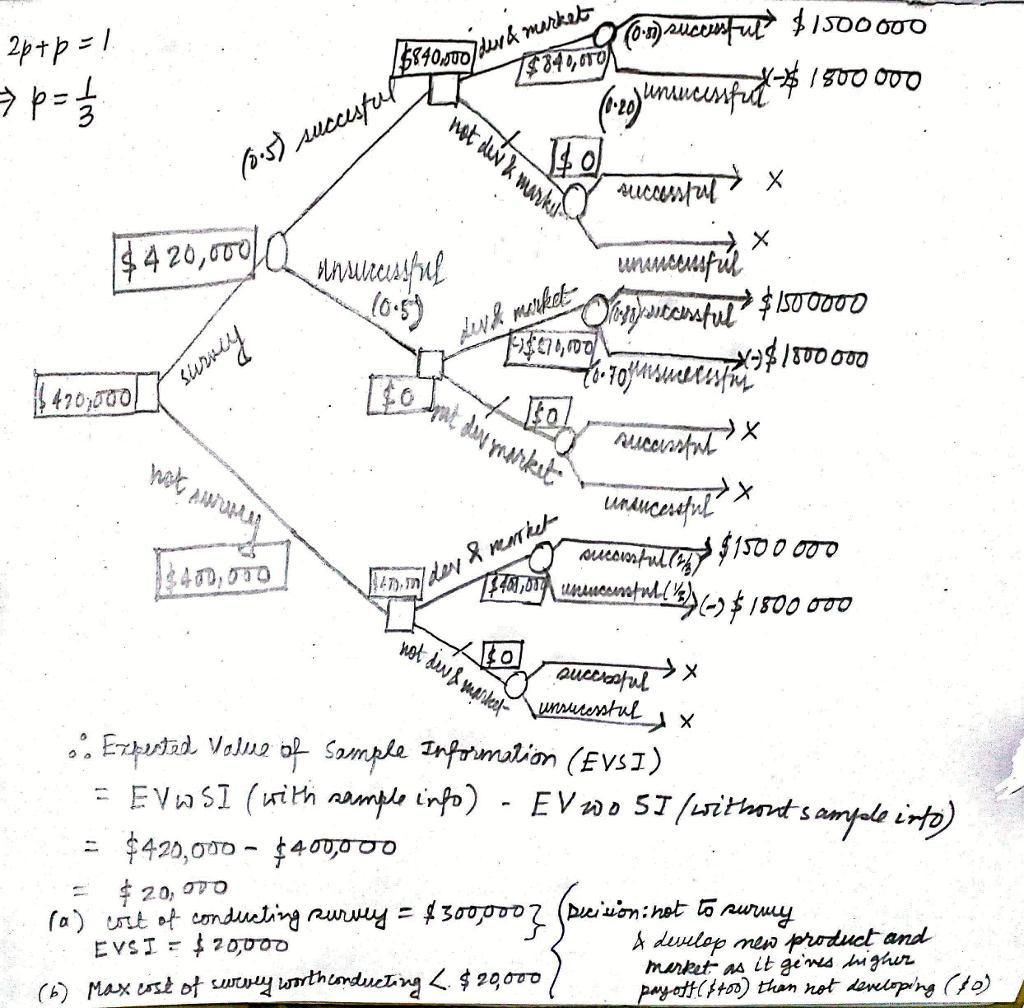 2p+p = 1
⇒ p = 1/3
$840,000
dev & market
$840,000
(0.80) successful
$1500 000
unsuccessful
(0.20)
(-)$ 1800 000
(0.5) succesful
not dev & market
$0
successful
X
unsuccessful
X
$420,000
unsuccessful
(0.5)
dev & market
successful
$1500000
(0.70) unsuccessful
(-)$1800 000
survey
$420,000
$0
not dev market
$0
successful
X
unsucessful
X
not survey
$400,000
dev & market
successful (2/3)
$1500 000
unsuccessful (1/3)
(-) $ 1800 000
not dev & market
$0
successful
X
unsuccessful
X
∴ Expected Value of Sample Information (EVSI)
= EVwSI (with sample info) - EVwoSI (without sample info)
= $420,000 - $400,000
= $20,000
(a) cost of conducting survey = $300,000 } Decision: not to survey
EVSI = $20,000
& develop new product and
market as it gives higher
(b) Max cost of survey worth conducting < $20,000
payoff ($400) than not developing ($0)